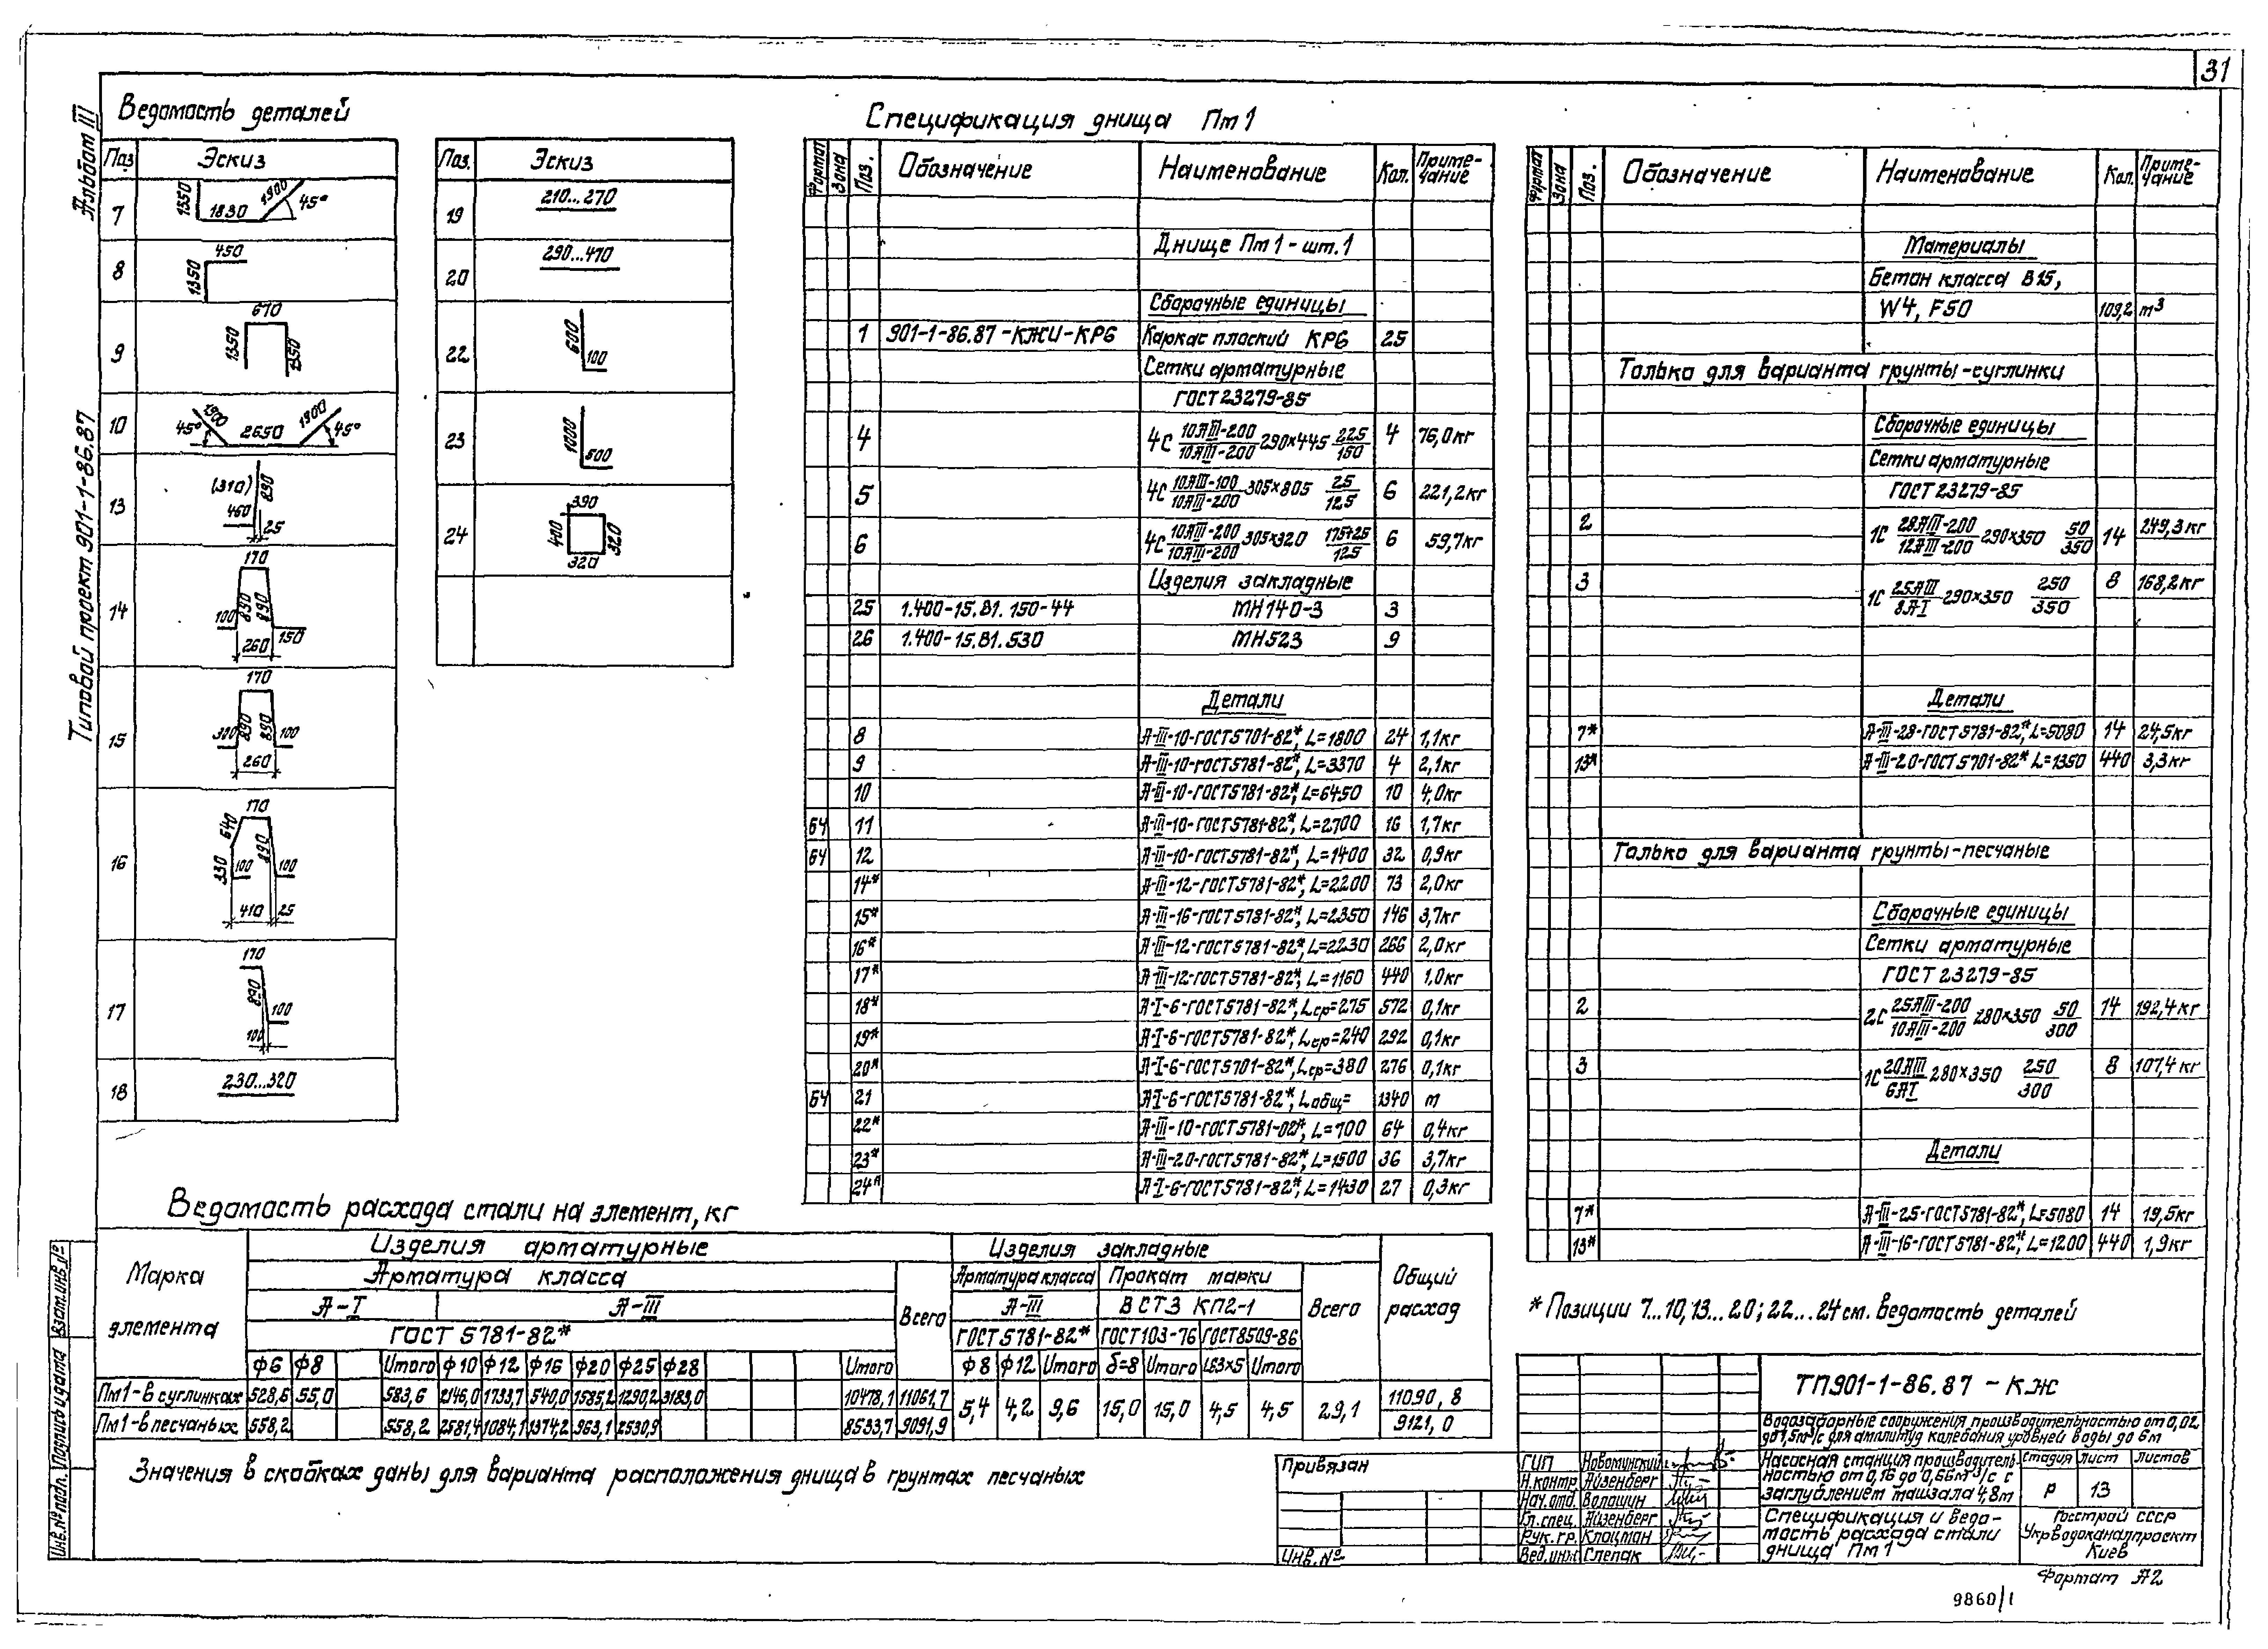 31
Альбом III
Типовой проект 901-1-86.87
Ведомость деталей
Поз Эскиз
7 1350 1830 1900 45°
8 450 1350
9 670 1350 1350
10 45° 1900 2650 1900 45°
13 (310) 890 460 25
14 170 890 890 100 260 150
15 170 300 890 890 100 260
16 170 640 890 330 100 100 410 25
17 170 890 100 100
18 230...320
Поз. Эскиз
19 210...270
20 290...470
22 600 100
23 1000 500
24 390 400 320 320
Спецификация днища Пм1
Формат Зона Поз. Обозначение Наименование Кол. Приме-чание
Днище Пм1-шт.1
Сборочные единицы
1 901-1-86.87-КЖИ-КР6 Каркас плоский КР6 25
Сетки арматурные
ГОСТ 23279-85
4 4С 10АIII-200/10АIII-200 290×445 225/150 4 76,0кг
5 4С 10АIII-100/10АIII-200 305×805 25/125 6 221,2кг
6 4С 10АIII-200/10АIII-200 305×320 175+25/125 6 59,7кг
Изделия закладные
25 1.400-15.В1.150-44 МН140-3 3
26 1.400-15.В1.530 МН523 9
Детали
8 А-III-10-ГОСТ5781-82*, L=1800 24 1,1кг
9 А-III-10-ГОСТ5781-82*, L=3370 4 2,1кг
10 А-III-10-ГОСТ5781-82*, L=6450 10 4,0кг
БЧ 11 А-III-10-ГОСТ5781-82*, L=2700 16 1,7кг
БЧ 12 А-III-10-ГОСТ5781-82*, L=1400 32 0,9кг
14* А-III-12-ГОСТ5781-82*, L=2200 73 2,0кг
15* А-III-16-ГОСТ5781-82*, L=2350 146 3,7кг
16* А-III-12-ГОСТ5781-82*, L=2230 266 2,0кг
17* А-III-12-ГОСТ5781-82*, L=1160 440 1,0кг
18* А-I-6-ГОСТ5781-82*, Lср=275 572 0,1кг
19* А-I-6-ГОСТ5781-82*, Lср=240 292 0,1кг
20* А-I-6-ГОСТ5781-82*, Lср=380 276 0,1кг
БЧ 21 А-I-6-ГОСТ5781-82*, Lобщ= 1340 м
22* А-III-10-ГОСТ5781-82*, L=700 64 0,4кг
23* А-III-20-ГОСТ5781-82*, L=1500 36 3,7кг
24* А-I-6-ГОСТ5781-82*, L=1430 27 0,3кг
Формат Зона Поз. Обозначение Наименование Кол. Приме-чание
Материалы
Бетон класса В15,
W4, F50 109,2 м³
Только для варианта грунты-суглинки
Сборочные единицы
Сетки арматурные
ГОСТ 23279-85
2 1С 28АIII-200/12АIII-200 290×350 50/350 14 249,3кг
3 1С 25АIII/8А-I 290×350 250/350 8 168,2кг
Детали
7* А-III-28-ГОСТ5781-82*, L=5080 14 24,5кг
13* А-III-20-ГОСТ5781-82* L=1350 440 3,3кг
Только для варианта грунты-песчаные
Сборочные единицы
Сетки арматурные
ГОСТ 23279-85
2 2С 25АIII-200/10АIII-200 280×350 50/300 14 192,4кг
3 1С 20АIII/6АI 280×350 250/300 8 107,4кг
Детали
7* А-III-25-ГОСТ5781-82*, L=5080 14 19,5кг
13* А-III-16-ГОСТ5781-82* L=1200 440 1,9кг
* Позиции 7...10, 13...20; 22...24 см. ведомость деталей
Ведомость расхода стали на элемент, кг
Марка элемента Изделия арматурные Изделия закладные Общий расход
Арматура класса Всего Арматура класса Прокат марки Всего
А-I А-III А-III ВСТ3 КП2-1
ГОСТ 5781-82* ГОСТ 5781-82* ГОСТ103-76 ГОСТ8509-86
ф6 ф8 Итого ф10 ф12 ф16 ф20 ф25 ф28 Итого ф8 ф12 Итого δ=8 Итого L63×5 Итого
Пм1-в суглинках 528,6 55,0 583,6 2146,0 1733,7 540,0 1585,2 1290,2 3183,0 10478,1 11061,7 5,4 4,2 9,6 15,0 15,0 4,5 4,5 29,1 11090,8
Пм1-в песчаных 558,2 558,2 2581,4 1084,1 1374,2 963,1 2530,9 8533,7 9091,9 9121,0
Значения в скобках даны для варианта расположения днища в грунтах песчаных
Инв.№ подл. Подпись и дата Взам.инв.№
Привязан
Инв.№
ТП901-1-86.87-КЖ
Водозаборные сооружения производительностью от 0,02
до 1,5м³/с для амплитуд колебания уровней воды до 6м
ГИП Новоминский
Н.контр. Айзенберг
Нач.отд. Волошин
Гл.спец. Айзенберг
Рук.гр. Клоцман
Вед.инж Слепак
Насосная станция производитель-
ностью от 0,16 до 0,66м³/с с
заглублением машзала 4,8м
Стадия Лист Листов
Р 13
Спецификация и ведо-
мость расхода стали
днища Пм1
Госстрой СССР
Укрводоканалпроект
Киев
Формат А2
9860/1